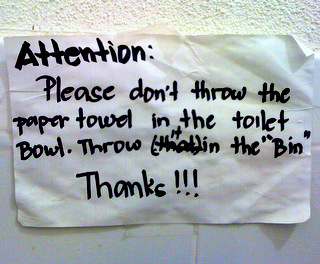 Attention:
Please don't throw the
paper towel in the toilet
Bowl. Throw (that) it in the "Bin"
Thanks!!!